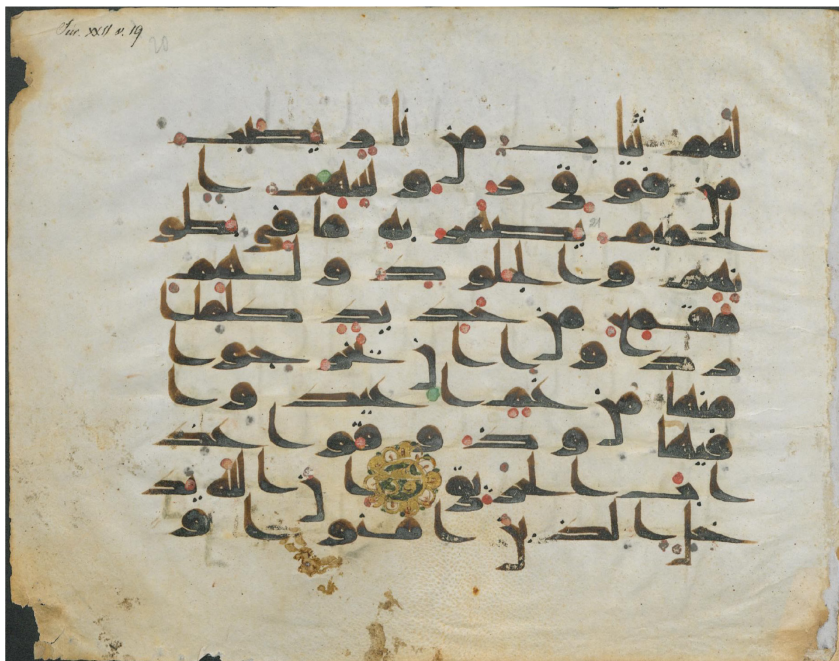 Sur. XXII v. 19
20
لهم ثياب من نار يصب
من فوق روسهم ا
لحميم يصهر به ما في بطو
21
نهم والجلود ولهم
مقمع من حديد كلما ا
ردوا ان يخرجوا
منها من غم اعيدوا
فيها وذوقوا عذ
اب الحريق ان الله يد
خل الذين امنوا و